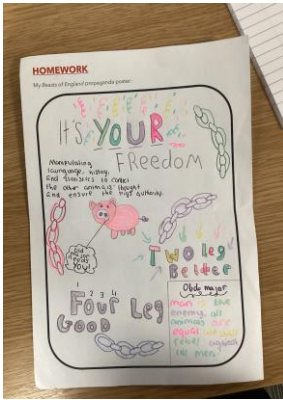 HOMEWORK
My Beasts of England propaganda poster:
It's YOUR
FREEDOM
Manipulating
language, history,
and
the other animals thought
and ensure the pigs authority.
YOU!
Two leg
Better
1 2 3 4
Four Leg
GOOD
Old major
man is the
enemy. all
animals are
equal
rebel against
all men